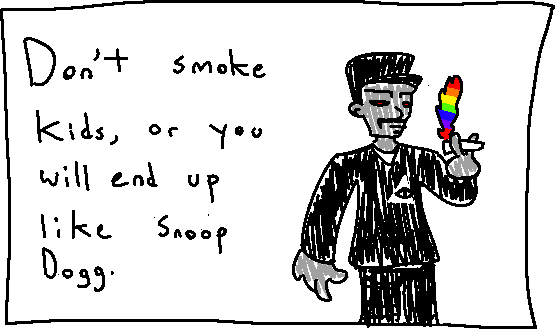 Don't smoke
kids, or you
will end up
like Snoop
Dogg.